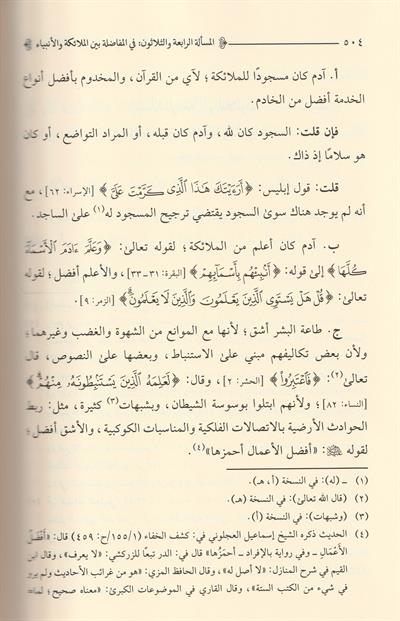 ٥٠٤ المسألة الرابعة والثلاثون: في المفاضلة بين الملائكة والأنبياء
أ. آدم كان مسجودًا للملائكة؛ لآي من القرآن، والمخدوم بأفضل أنواع
الخدمة أفضل من الخادم.
فإن قلت: السجود كان لله، وآدم كان قبله، أو المراد التواضع، أو كان
هو سلامًا إذ ذاك.
قلت: قول إبليس: ﴿أَرَءَيْتَكَ هَٰذَا ٱلَّذِى كَرَّمْتَ عَلَىَّ﴾ [الإسراء: ٦٢]، مع
أنه لم يوجد هناك سوىٰ السجود يقتضي ترجيح المسجود له(١) علىٰ الساجد.
ب. آدم كان أعلم من الملائكة؛ لقوله تعالىٰ: ﴿وَعَلَّمَ ءَادَمَ ٱلْأَسْمَآءَ
كُلَّهَا﴾ إلىٰ قوله: ﴿أَنۢبِئْهُم بِأَسْمَآئِهِمْ﴾ [البقرة: ٣١-٣٣]، والأعلم أفضل؛ لقوله
تعالىٰ: ﴿قُلْ هَلْ يَسْتَوِى ٱلَّذِينَ يَعْلَمُونَ وَٱلَّذِينَ لَا يَعْلَمُونَ﴾ [الزمر: ٩].
ج. طاعة البشر أشق؛ لأنها مع الموانع من الشهوة والغضب وغيرهما؛
ولأن بعض تكاليفهم مبني علىٰ الاستنباط، وبعضها علىٰ النصوص، قال
تعالىٰ(٢): ﴿فَٱعْتَبِرُوا۟﴾ [الحشر: ٢]، وقال: ﴿لَعَلِمَهُ ٱلَّذِينَ يَسْتَنۢبِطُونَهُۥ مِنْهُمْ﴾
[النساء: ٨٢]؛ ولأنهم ابتلوا بوسوسة الشيطان، وبشبهات(٣) كثيرة، مثل: ربط
الحوادث الأرضية بالاتصالات الفلكية والمناسبات الكوكبية، والأشق أفضل؛
لقوله ﷺ: «أفضل الأعمال أحمزها»(٤).
(١) ـ (له): في النسخة (أ، هـ).
(٢) (قال الله تعالىٰ): في النسخة (هـ).
(٣) (وشبهات): في النسخة (أ).
(٤) الحديث ذكره الشيخ إسماعيل العجلوني في: كشف الخفاء (١/١٥٥/ح: ٤٥٩) قال: «أَفْضَلُ
الأَعْمَالِ ـ وفي رواية بالإفراد ـ أحمَزُها» قال في: الدرر تبعًا للزركشي: «لا يعرف»، وقال ابن
القيم في شرح المنازل: «لا أصل له»، وقال الحافظ المزي: «هو من غرائب الأحاديث ولم يرو
في شيء من الكتب الستة»، وقال القاري في الموضوعات الكبرىٰ: «معناه صحيح؛ لما=